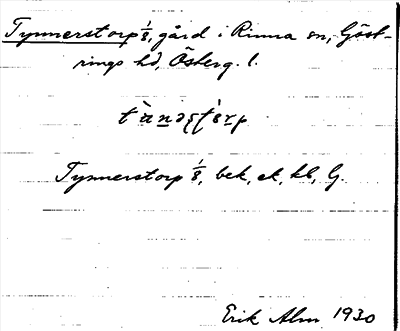 Tynnerstorp 1/8, gård i Rinna sn, Göst-
rings hd, Österg. l.
Tynnerstorp 1/8, bek, ek, hl, G.
Erik Alm 1930